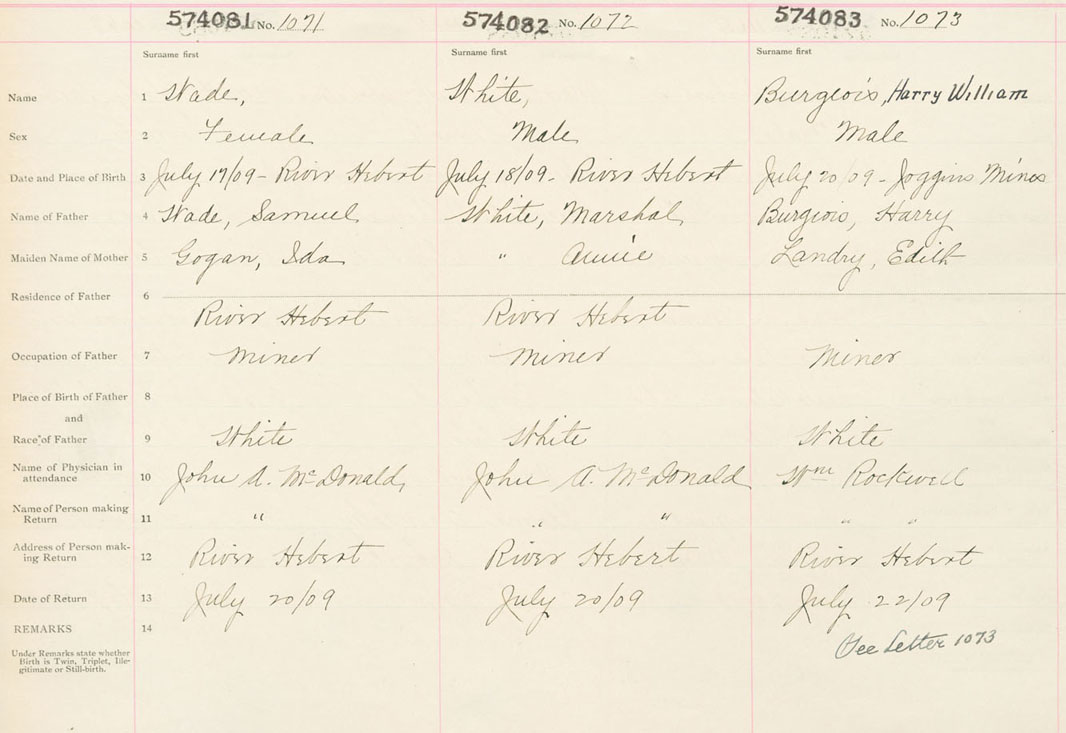 574081 No. 1071 574082 No. 1072 574083 No. 1073
Surname first Surname first Surname first
Name 1 Wade, White, Burgiois, Harry William
Sex 2 Female Male Male
Date and Place of Birth 3 July 17/09 - River Hebert July 18/09 - River Hebert July 20/09 - Joggins Mines
Name of Father 4 Wade, Samuel White, Marshal Burgiois, Harry
Maiden Name of Mother 5 Gogan, Ida " Annie Landry, Edith
Residence of Father 6
River Hebert River Hebert
Occupation of Father 7 Miner Miner Miner
Place of Birth of Father 8
and
Race of Father 9 White White White
Name of Physician in
attendance 10 John A. McDonald, John A. McDonald Wm Rockwell
Name of Person making
Return 11 " " " " "
Address of Person mak-
ing Return 12 River Hebert River Hebert River Hebert
Date of Return 13 July 20/09 July 20/09 July 22/09
REMARKS 14
See Letter 1073
Under Remarks state whether
Birth is Twin, Triplet, Ille-
gitimate or Still-birth.